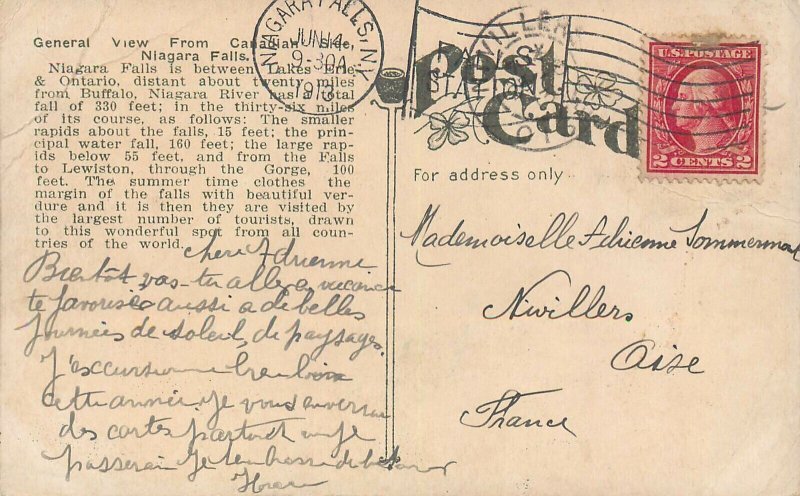 General View From Canadian Side,
Niagara Falls.
Niagara Falls is between Lakes Erie
& Ontario, distant about twenty miles
from Buffalo, Niagara River has a total
fall of 330 feet; in the thirty-six miles
of its course, as follows: The smaller
rapids about the falls, 15 feet; the prin-
cipal water fall, 160 feet; the large rap-
ids below 55 feet, and from the Falls
to Lewiston, through the Gorge, 100
feet. The summer time clothes the
margin of the falls with beautiful ver-
dure and it is then they are visited by
the largest number of tourists, drawn
to this wonderful spot from all coun-
tries of the world.
chère Adrienne
Bientôt vas-tu aller en vacance
te favorise aussi a de belles
Journées de soleil, de paysages.
J'excursionne
cette année. Je vous enverrai
des cartes partout où je
passerai Je
NIAGARA FALLS, N.Y.
JUN 14
9-30A
1913
FALLS
STATION
Post
Card
U.S. POSTAGE
2 CENTS 2
For address only
Mademoiselle Adrienne
Nivillers
Oise
France